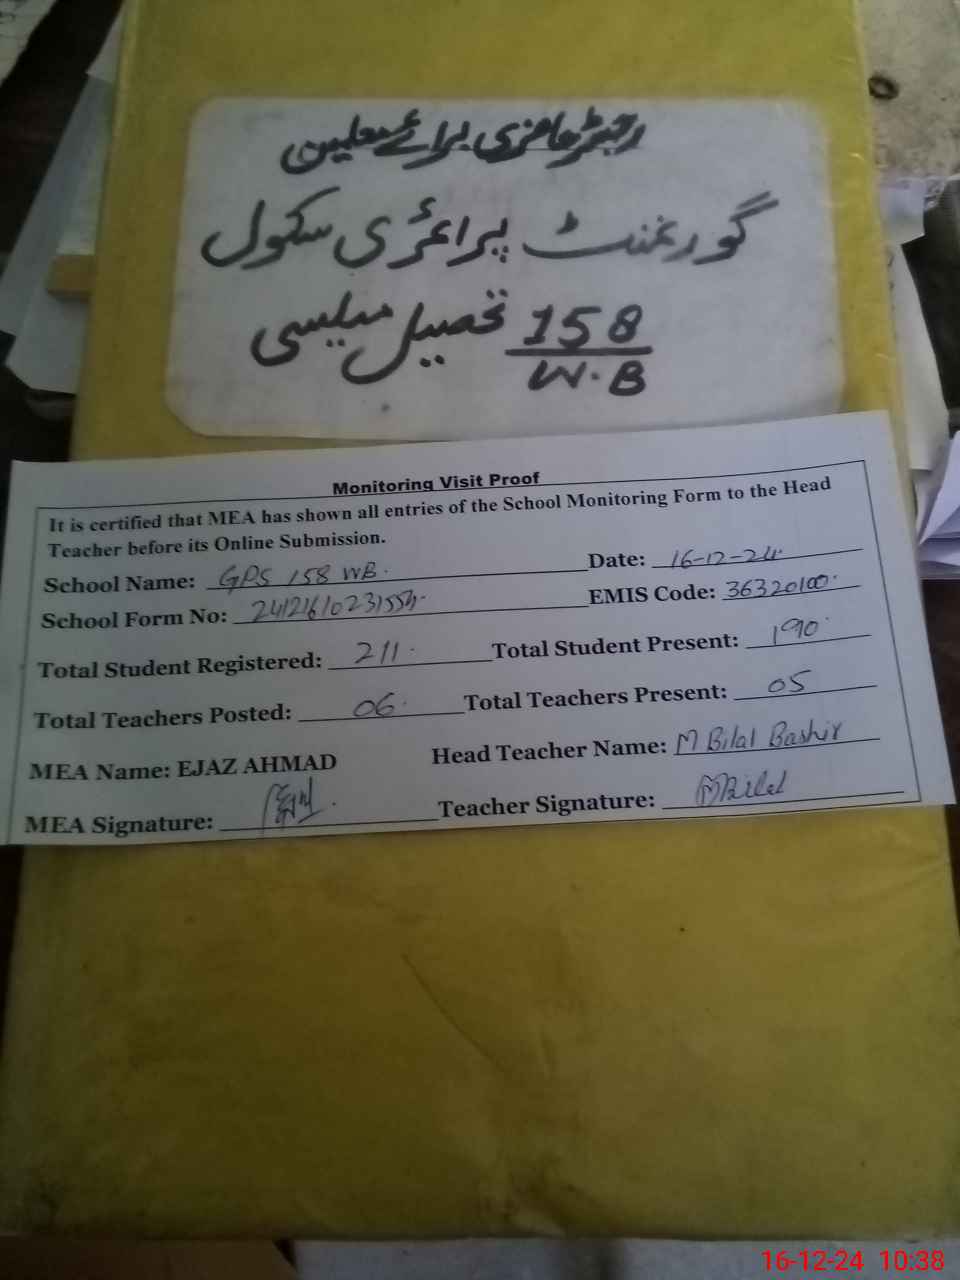 رجسٹر حاضری برائے معلمین
گورنمنٹ پرائمری سکول
158/W.B تحصیل میلسی
Monitoring Visit Proof
It is certified that MEA has shown all entries of the School Monitoring Form to the Head
Teacher before its Online Submission.
School Name: GPS 158 WB. Date: 16-12-24.
School Form No: EMIS Code: 36320100.
Total Student Registered: 211. Total Student Present: 190
Total Teachers Posted: 06. Total Teachers Present: 05
MEA Name: EJAZ AHMAD Head Teacher Name: M Bilal Bashir
MEA Signature: Teacher Signature: MBilal
16-12-24 10:38